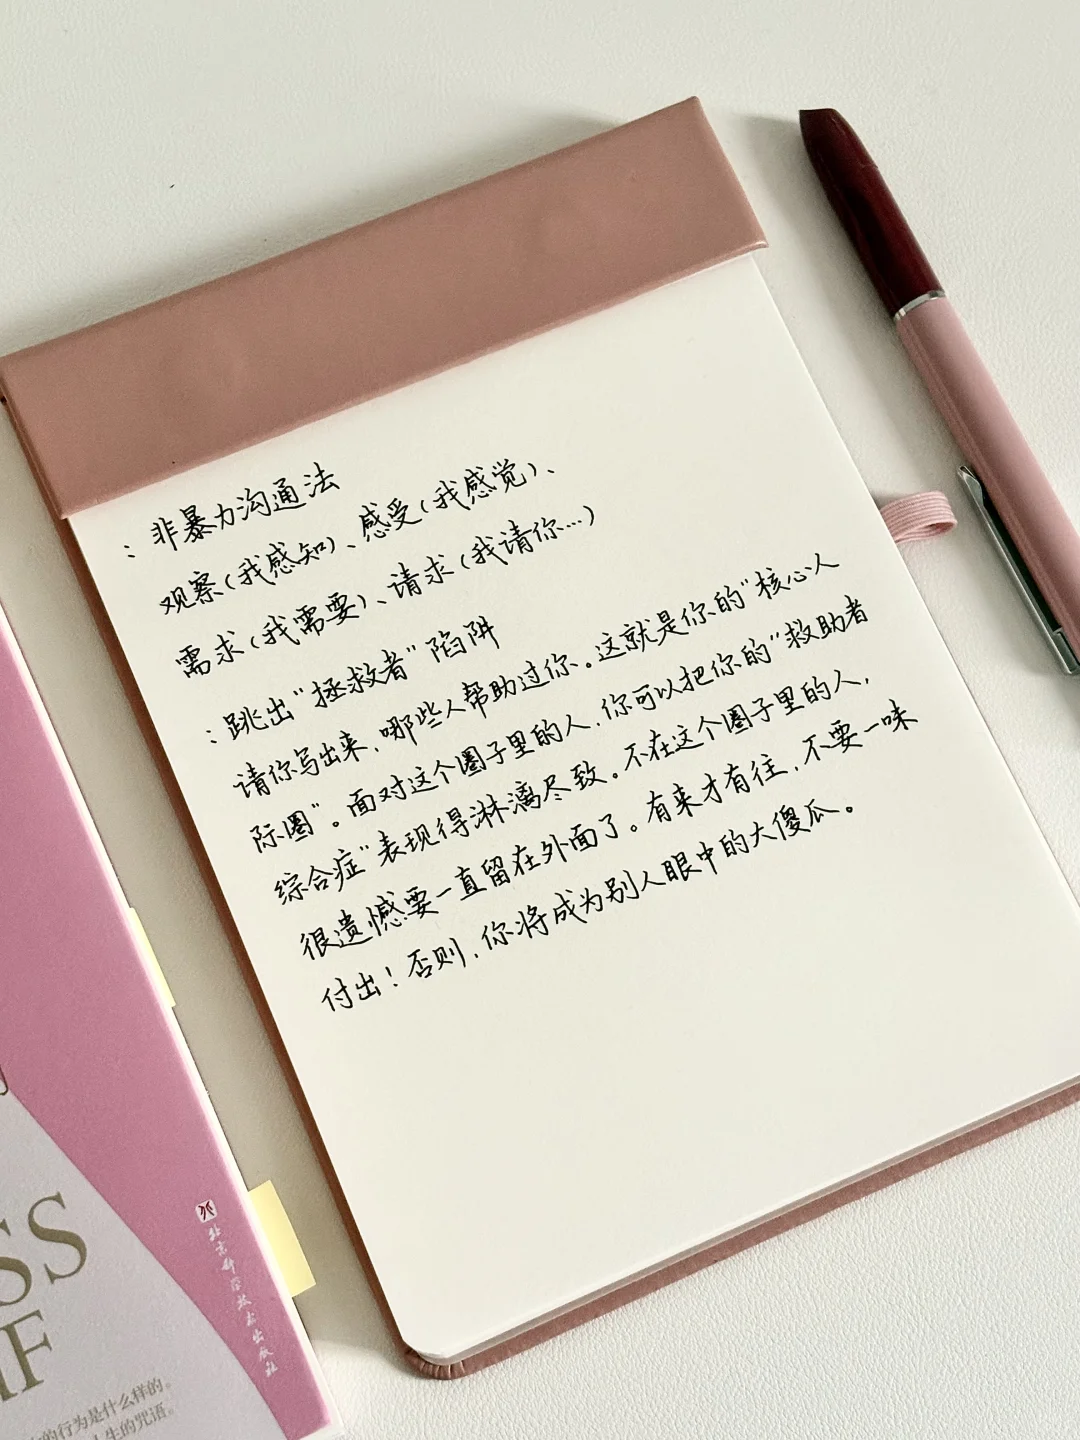 ：非暴力沟通法
观察(我感知)、感受(我感觉)、
需求(我需要)、请求(我请你…)
：跳出"拯救者"陷阱
请你写出来，哪些人帮助过你。这就是你的"核心人
际圈"。面对这个圈子里的人，你可以把你的"救助者
综合症"表现得淋漓尽致。不在这个圈子里的人，
很遗憾要一直留在外面了。有来才有往，不要一味
付出！否则，你将成为别人眼中的大傻瓜。
北京科学技术出版社
SS
的行为是什么样的。
人生的咒语。